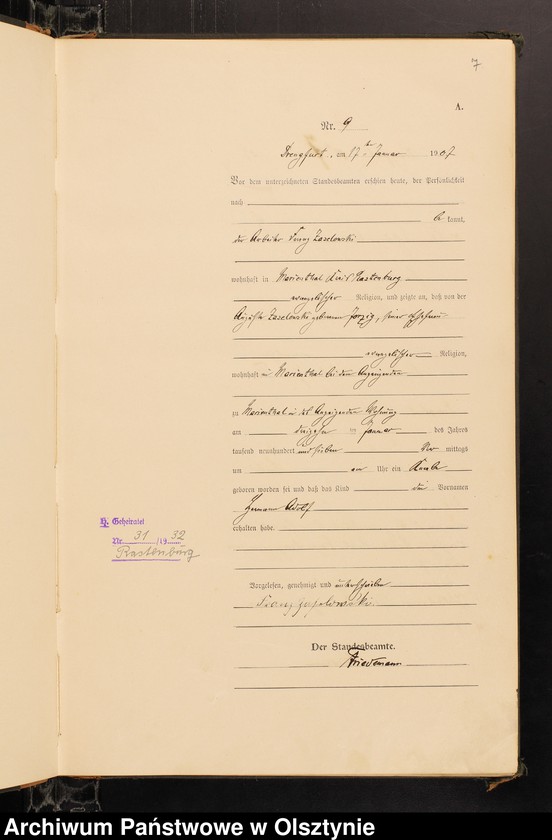 7
A.
Nr. 9
Drengfurt, am 17ten Januar 1907
Vor dem unterzeichneten Standesbeamten erschien heute, der Persönlichkeit
nach
be kannt,
der Arbeiter Franz Zaselowski
wohnhaft in Marienthal Kreis Rastenburg
evangelischer Religion, und zeigte an, daß von der
Auguste Zaselowski geborenen, seiner Ehefrau
evangelischer Religion,
wohnhaft in Marienthal bei dem Anzeigenden
zu Marienthal in des Anzeigenden Wohnung
am dreizehn ten Januar des Jahres
tausend neunhundert und sieben Vor mittags
um ein Uhr ein Knabe
geboren worden sei und daß das Kind die Vornamen
Hermann Adolf
erhalten habe.
H. Geheiratet
Nr. 31/1932
Rastenburg
Vorgelesen, genehmigt und unterschrieben
Franz Zaselowski.
Der Standesbeamte.
Friedemann
Archiwum Państwowe w Olsztynie